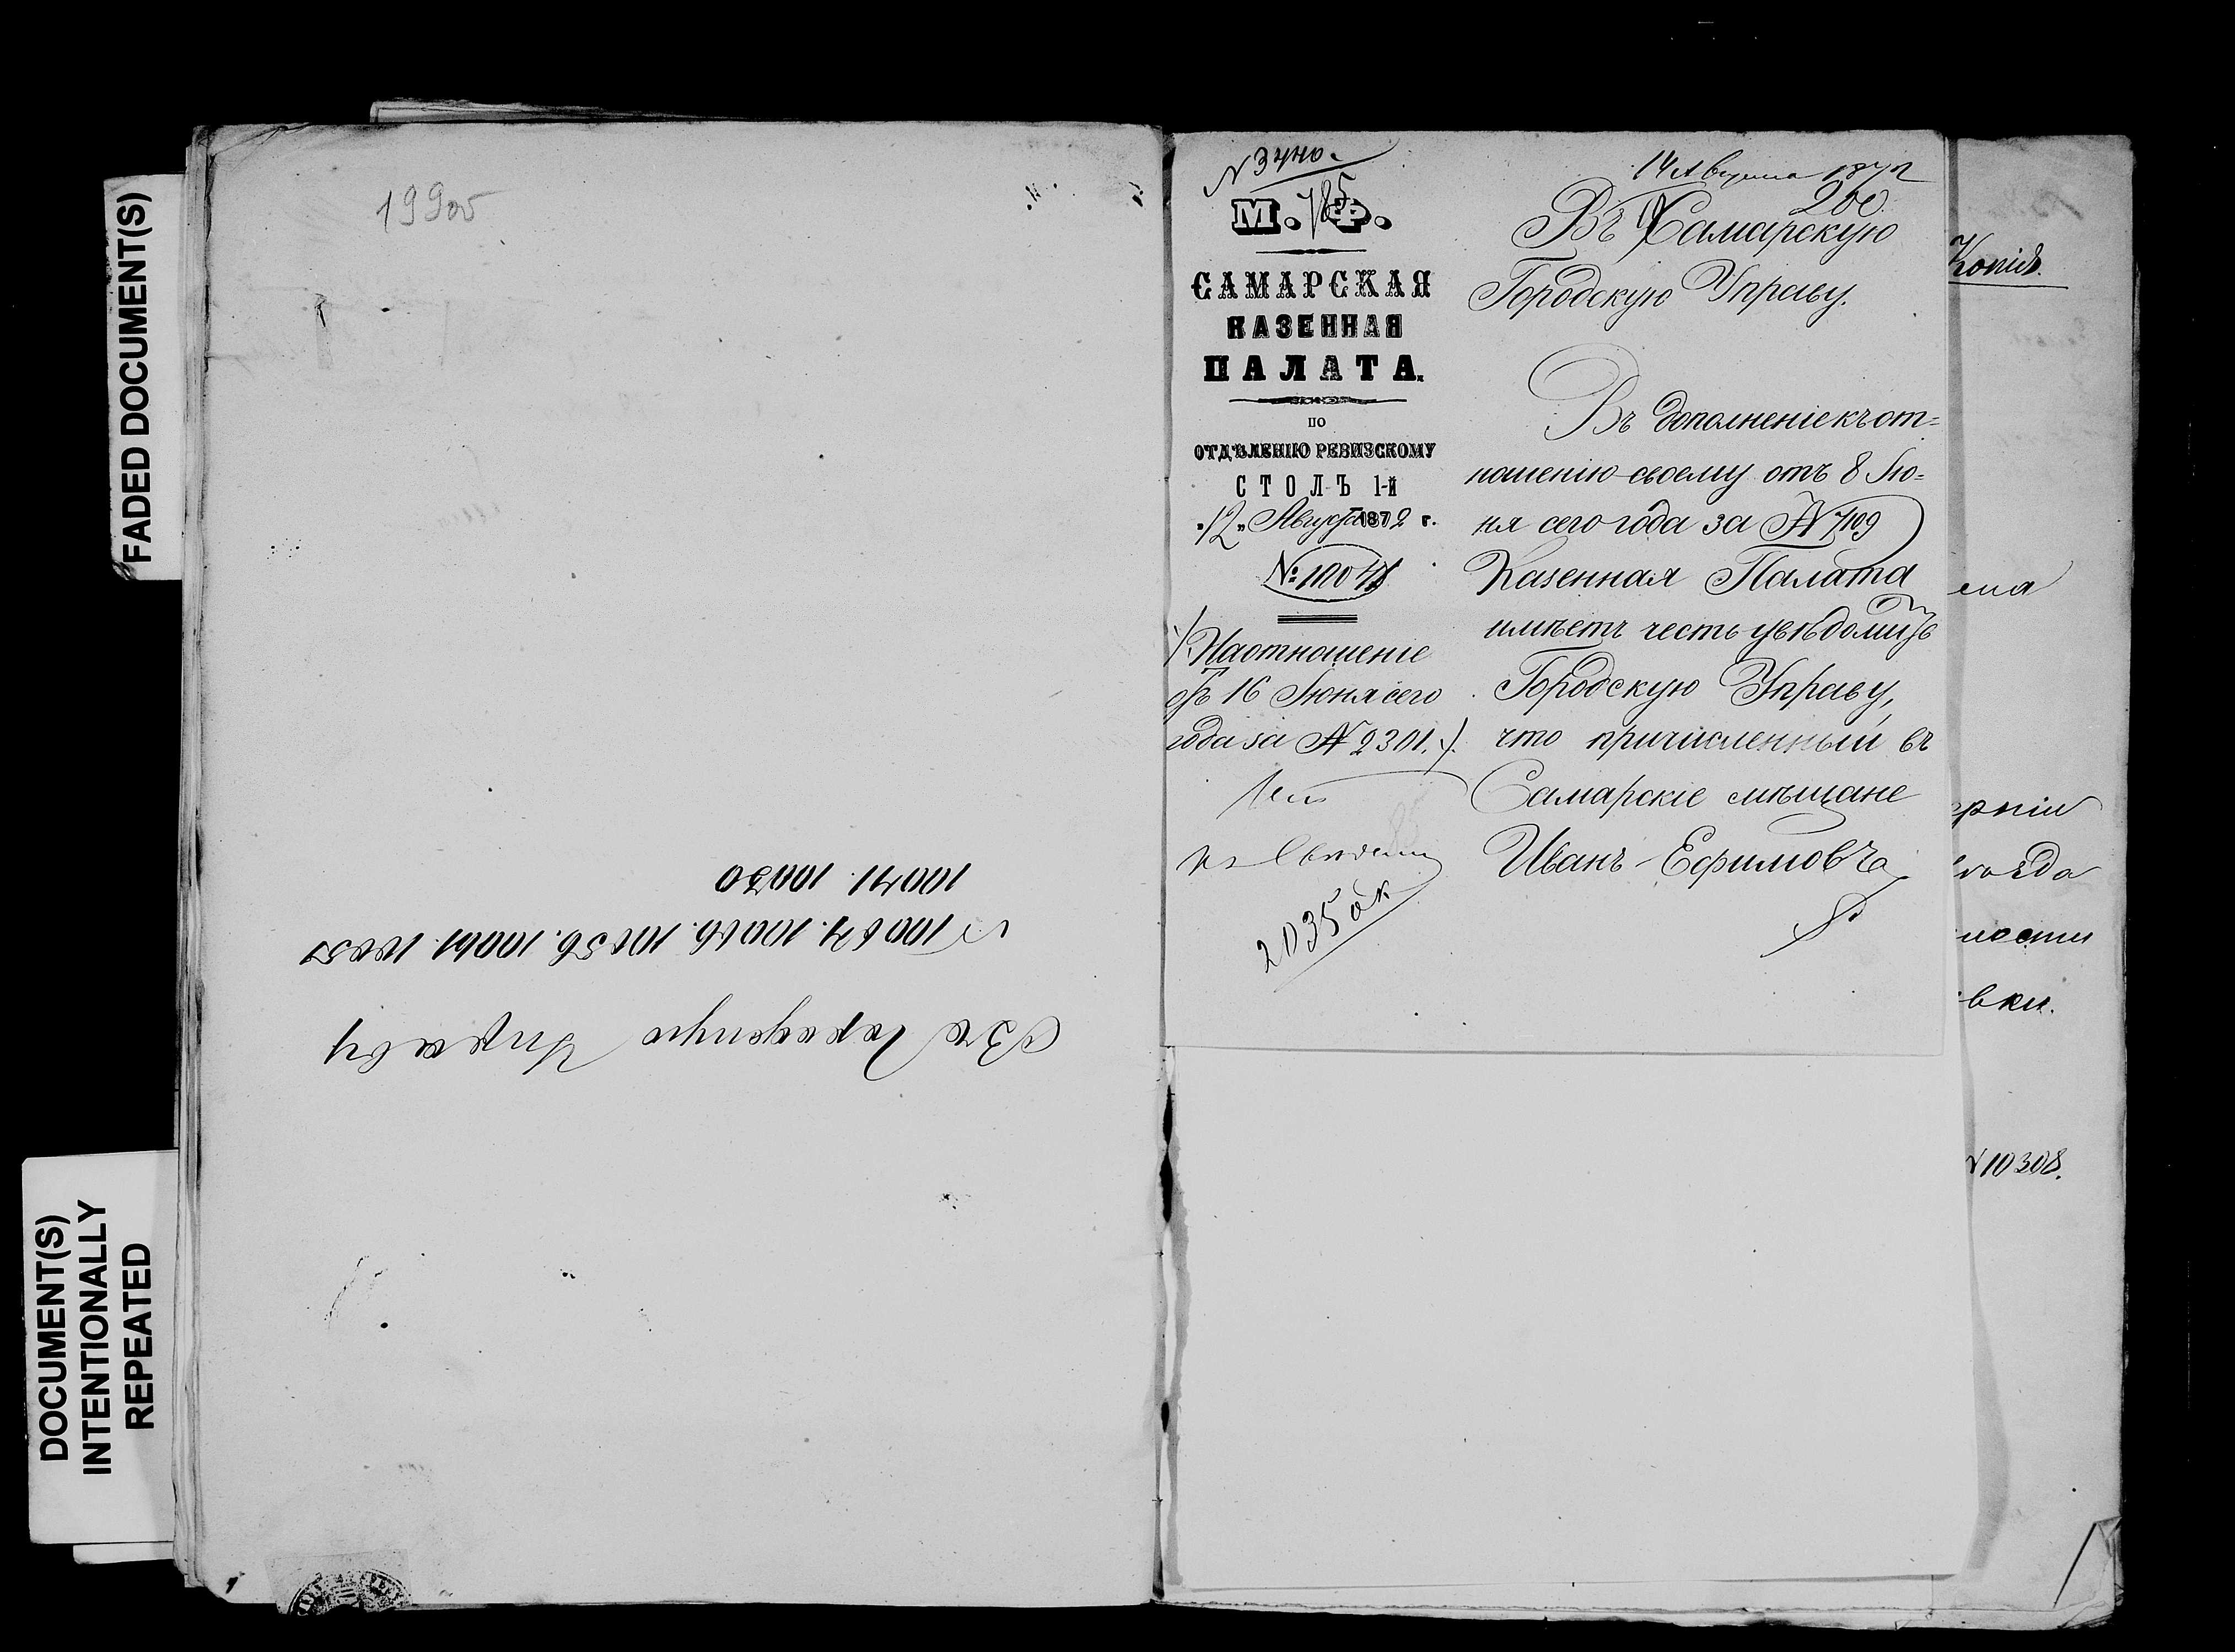 FADED DOCUMENT(S)
DOCUMENT(S)
INTENTIONALLY
REPEATED
199об
Въ Городскую Управу
10071. 10030
№ 3440.
М. Ф.
785
САМАРСКАЯ
КАЗЕННАЯ
ПАЛАТА.
ПО
ОТДѢЛЕНІЮ РЕВИЗСКОМУ
СТОЛЪ 1-й
„12„ Августа 1872 г.
/. На отношеніе
отъ 16 Іюня сего
года за № 2301. /.
2035
14 Августа 1872
200
Въ Самарскую
Городскую Управу.
Въ дополненіе къ от=
ношенію своему отъ 8 Ію=
ня сего года за № 7109
Казенная Палата
имѣетъ честь увѣдомить
Городскую Управу,
что причисленный въ
Самарскіе мѣщане
Иванъ Ефимовъ
Копія.
ерніи
ѣзда
ности
вки.
№ 10308.